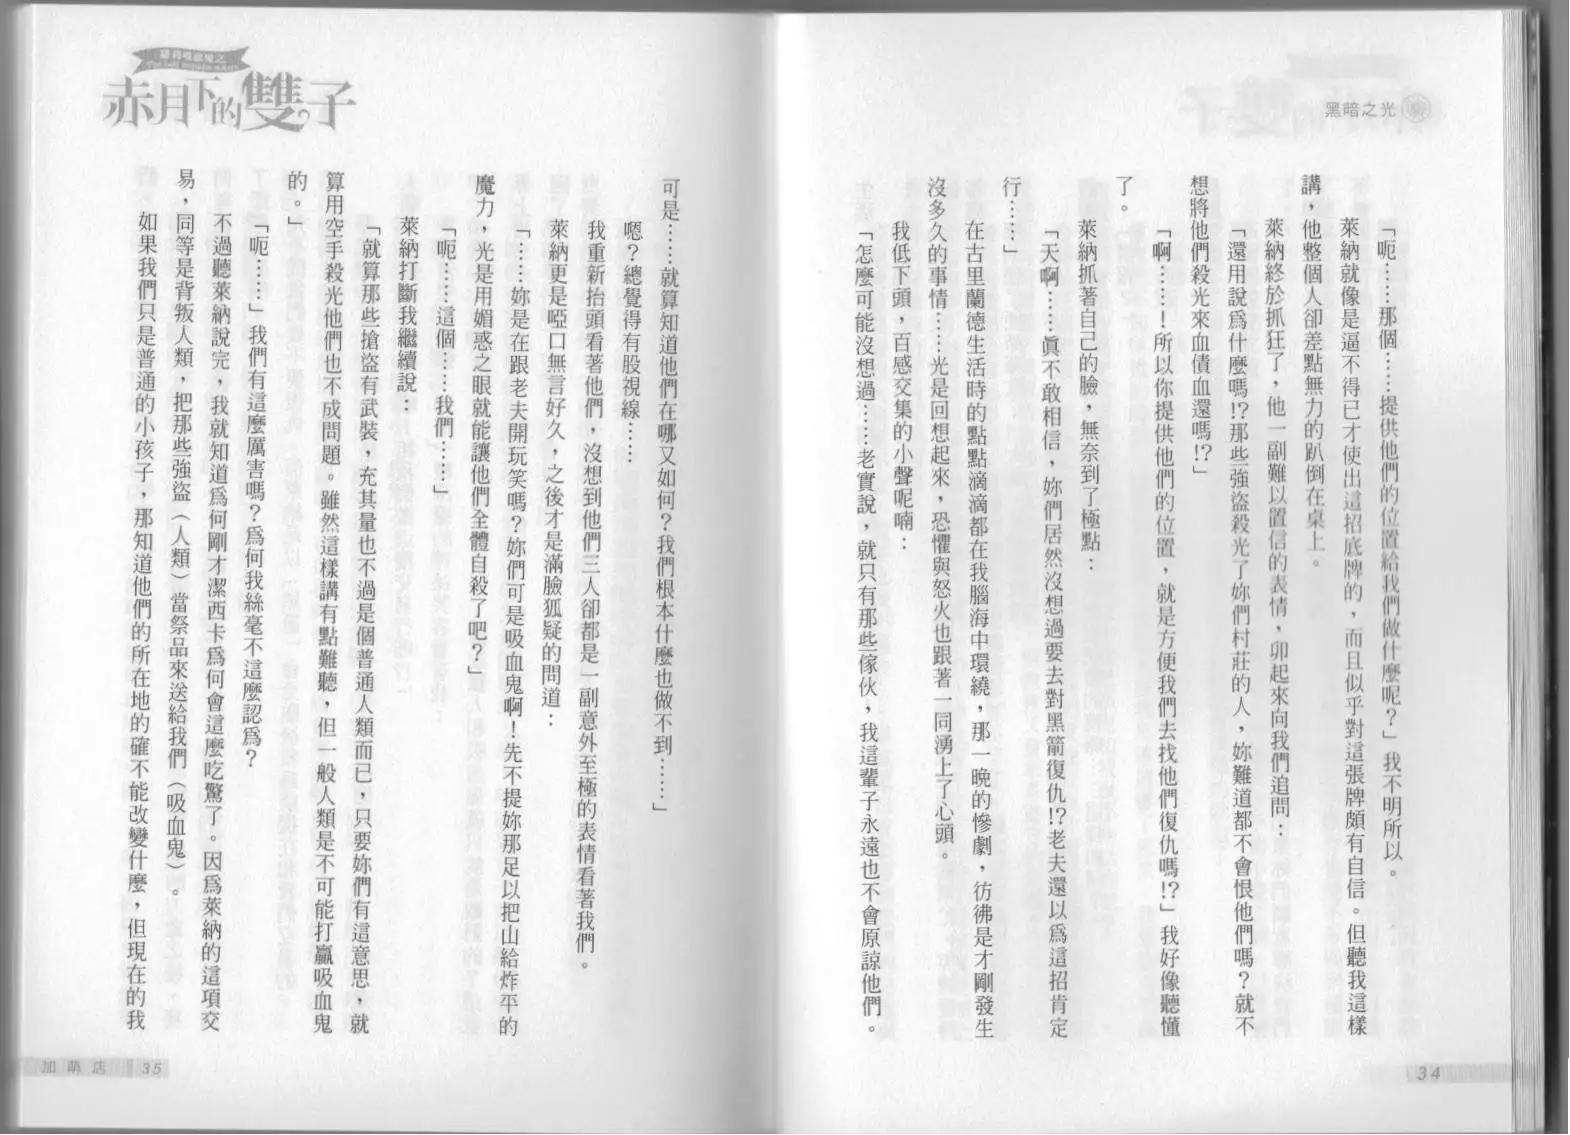 黑暗之光
「呃……那個……提供他們的位置給我們做什麼呢？」我不明所以。
萊納就像是逼不得已才使出這招底牌的，而且似乎對這張牌頗有自信。但聽我這樣
講，他整個人卻差點無力的趴倒在桌上。
萊納終於抓狂了，他一副難以置信的表情，卯起來向我們追問：
「還用說爲什麼嗎!?那些強盜殺光了妳們村莊的人，妳難道都不會恨他們嗎？就不
想將他們殺光來血債血還嗎!?」
「啊……！所以你提供他們的位置，就是方便我們去找他們復仇嗎!?」我好像聽懂
了。
萊納抓著自己的臉，無奈到了極點：
「天啊……眞不敢相信，妳們居然沒想過要去對黑箭復仇!?老夫還以爲這招肯定
行……」
在古里蘭德生活時的點點滴滴都在我腦海中環繞，那一晚的慘劇，彷彿是才剛發生
沒多久的事情……光是回想起來，恐懼與怒火也跟著一同湧上了心頭。
我低下頭，百感交集的小聲呢喃：
「怎麼可能沒想過……老實說，就只有那些傢伙，我這輩子永遠也不會原諒他們。
34
赤月下的雙子
可是……就算知道他們在哪又如何？我們根本什麼也做不到……」
嗯？總覺得有股視線……
我重新抬頭看著他們，沒想到他們三人卻都是一副意外至極的表情看著我們。
萊納更是啞口無言好久，之後才是滿臉狐疑的問道：
「……妳是在跟老夫開玩笑嗎？妳們可是吸血鬼啊！先不提妳那足以把山給炸平的
魔力，光是用媚惑之眼就能讓他們全體自殺了吧？」
「呃……這個……我們……」
萊納打斷我繼續說：
「就算那些搶盜有武裝，充其量也不過是個普通人類而已，只要妳們有這意思，就
算用空手殺光他們也不成問題。雖然這樣講有點難聽，但一般人類是不可能打贏吸血鬼
的。」
「呃……」我們有這麼厲害嗎？爲何我絲毫不這麼認爲？
不過聽萊納說完，我就知道爲何剛才潔西卡爲何會這麼吃驚了。因爲萊納的這項交
易，同等是背叛人類，把那些強盜（人類）當祭品來送給我們（吸血鬼）。
如果我們只是普通的小孩子，那知道他們的所在地的確不能改變什麼，但現在的我
加萌店 35